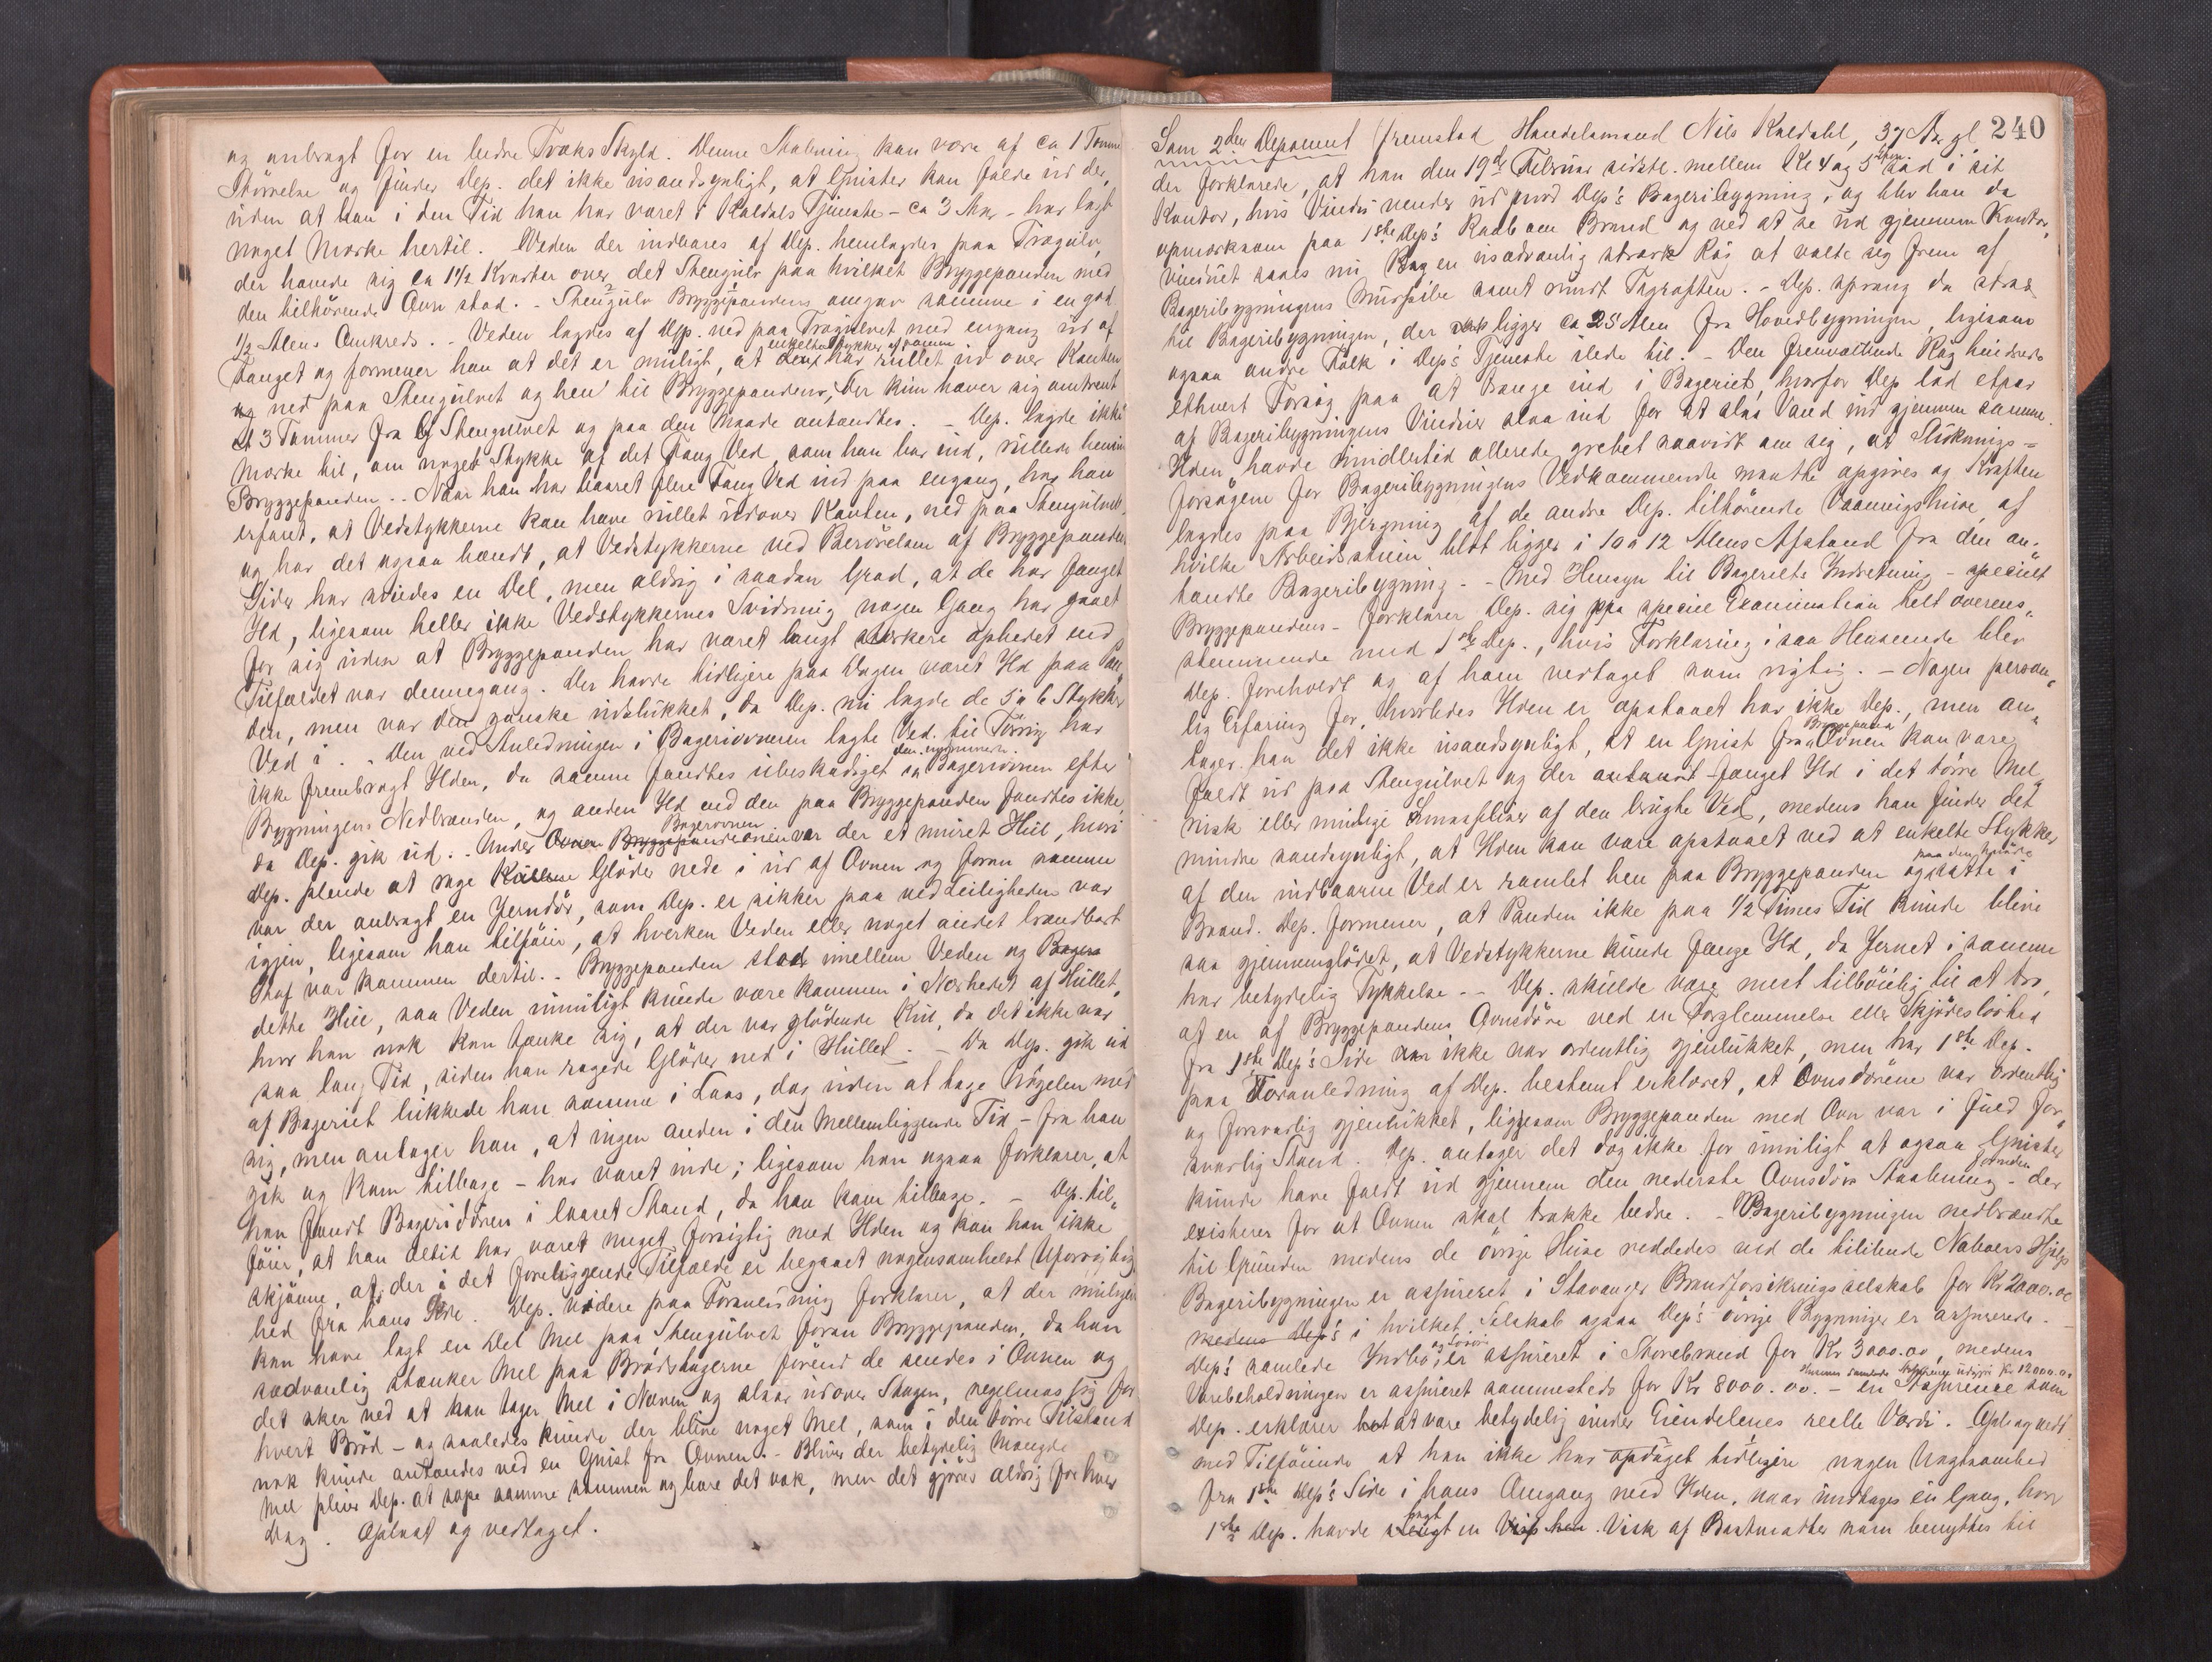 og anbragt for en bedre Træks Skyld. Denne Aabning kan være af ca 1 Tomme
Størrelse og finder Dep. det ikke usandsynligt, at Gnister kan falde ud der,
uden at han i den Tid han har været i Kaldals Tjeneste - ca 3 Aar - har lagt
noget Mærke hertil. Veden der indbares af Dep. henlagdes paa Trægulv,
der hævede sig ca 1½ Kvarter over det Stengulv paa hvilket Bryggepanden med
den tilhørende Ovn stod. - Stengulv Bryggepandens omgav samme i en god
½ Alens Omkreds. - Veden lagdes af Dep. ned paa Trægulvet med engang ud af
Fanget og formener han at det er muligt, at enkelte Stykker af samme har rullet ud over Kanten
og ned paa Stengulvet og hen til Bryggepandens, der kun hæver sig omtrent
et 3 Tommer fra Stengulvet og paa den Maade antændtes. - Dep. lagde ikke
Mærke til, om noget Stykke af det Fang Ved, som han bar ind, rullede henimod
Bryggepanden. - Naar han har baaret flere Fang Ved ind paa engang, har han
erfaret, at Vedstykkerne kan have rullet udover Kanten, ned paa Stengulvet
og har det ogsaa hændt, at Vedstykkerne ved Berørelsen af Bryggepandens
Sider har svides en Del, men aldrig i saadan Grad, at de har fanget
Ild, ligesom heller ikke Vedstykkernes Svidning nogen Gang har gaaet
for sig uden at Bryggepanden har været langt stærkere ophedet end
Tilfældet var dennegang. Der havde tidligere paa Dagen været Ild paa Pan„
den, men var den ganske udslukket, da Dep. nu lagde de 5 a 6 Stykker
Ved i. - Den ved Anledningen i Bageriovnen lagte Ved til Tørring har
ikke frembragt Ilden, da samme fandtes ubeskadiget i Bagerovnen efter
Bygningens Nedbrænden, og anden Ild end den paa Bryggepanden fandtes ikke
da Dep. gik ud. - Under Bagerovnen var der et muret Hul, hvori
Dep. pleiede at rage Gløder nede i ud af Ovnen og foran samme
var der anbragt en Jerndør, som Dep. er sikker paa ved Leiligheden var
igjen, ligesom han tilføier, at hverken Veden eller noget andet brændbart
Stof var kommen dertil. - Bryggepanden stod imellem Veden og
dette Hul, saa Veden umuligt kunde være kommen i Nærheden af Hullet,
hvor han nok kan tænke sig, at der var glødende Kul, da det ikke var
saa lang Tid, siden han ragede Gløder ned i Hullet. - Da Dep. gik ud
af Bageriet lukkede han samme i Laas, dog uden at tage Nøgelen med
sig, men antager han, at ingen anden i den mellemliggende Tid - fra han
gik og kom tilbage - har været inde; ligesom han ogsaa forklarer, at
han fandt Bageridøren i laaset Stand, da han kom tilbage. - Dep. til„
føier, at han altid har været meget forsigtig med Ilden og kan han ikke
skjønne, at der i det foreliggende Tilfælde er begaaet nogensomhelst Uforsigtig
hed fra hans Side. Dep. videre paa Foranledning forklarer, at der muligens
kan have lagt en Del Mel paa Stengulvet foran Bryggepanden, da han
sædvanlig stænker Mel paa Brødstagerne førend de sendes i Ovnen og
det sker ved at han tager Mel i Næven og slaar udover Stagen, regelmæssig for
hvert Brød - og saaledes kunde der blive noget Mel, som i den tørre Tilstand
nok kunde antændes ved en Gnist fra Ovnen. - Bliver der betydelig Mængde
Mel pleier Dep. at sope samme sammen og bære det væk, men det gjøres aldrig for hver
Dag. Oplæst og vedtaget.
240
Som 2den Deponent fremstod Handelsmand Nils Kaldahl, 37 Aar gl.
der forklarede, at han den 19de Februar sidstl. mellem Kl 4 og 5 sad i sit
Kontor, hvis Vindu vender ud mod Dep's Bageribygning, og blev han da
opmærksom paa 1ste Dep's Raab om Brand og ved at se ud gjennem Kontor„
vinduet saaes nu en usædvanlig stærk Røg at vælte sig frem af
Bageribygningens Murpibe samt rundt Tagraften. - Dep. sprang da strax
til Bageribygningen, der ligger ca 25 Alen fra Hovedbygningen, ligesom
ogsaa andre Folk i Dep's Tjeneste ilede til. - Den fremvæltende Røg hindrede
ethvert Forsøg paa at trænge ind i Bageriet, hvorfor Dep lod etpar
af Bageribygningens Vinduer slaa ind for at slaa Vand ind gjennem samme.
Ilden havde imidlertid allerede grebet saavidt om sig, at Sluknings-
forsøgene for Bageribygningens Vedkommende maatte opgives og Kraften
lagdes paa Bjergning af de andre Dep. tilhørende Vaaningshuse, af
hvilke Arbeidsstuen blot ligger i 10 a 12 Alens Afstand fra den an„
tændte Bageribygning. - Med Hensyn til Bageriets Indretning - specielt
Bryggepandens - forklarer Dep. sig paa speciel Examination helt overens„
stemmende med 1ste Dep., hvis Forklaring i saa Henseende blev
Dep. foreholdt og af ham vedtaget som rigtig. - Nogen person„
lig Erfaring for, hvorledes Ilden er opstaaet har ikke Dep., men an„
tager han det ikke usandsynligt, at en Gnist fra Bryggepand Ovnen kan være
faldt ud paa Stengulvet og der antændt - fanget Ild i det tørre Mel,
Rusk eller mulige Smaafliser af den brugte Ved, medens han finder det
mindre sandsynligt, at Ilden kan være opstaaet ved at enkelte Stykker
af den indbaarne Ved er ramlet hen paa Bryggepanden og paa den Maade satte i
Brand. Dep. formener, at Panden ikke paa ½ Times Tid kunde blive
saa gjennemglødet, at Vedstykkerne kunde fange Ild, da Jernet i samme
har betydelig Tykkelse. - Dep. skulde være mest tilbøielig til at tro,
at en af Bryggepandens Ovnsdøre ved en Forglemmelse eller Skjødesløshed
fra 1ste Dep's Side ikke var ordentlig gjenlukket, men har 1ste Dep.
paa Foranledning af Dep. bestemt erklæret, at Ovnsdørene var ordentlig
og forsvarlig gjenlukket, ligesom Bryggepanden med Ovn var i fuld for„
svarlig Stand. Dep. antager det dog ikke for umuligt at ogsaa Gnister
kunde have faldt ud gjennem den nederste Ovnsdørs Aabning - der
existerer for at Ovnen skal trække bedre. - Bageribygningen nedbrændte
til Grunden medens de øvrige Huse reddedes ved de tililende Naboers Hjælp
Bageribygningen er assureret i Stavanger Brandforsikringsselskab for Kr 2000.00
medens Dep's i hvilket Selskab ogsaa Dep's øvrige Bygninger er assurerede. -
Dep's samlede Indbo og Løsøre er assureret i Storebrand for Kr 3000.00, medens
Varebeholdningen er assureret sammesteds for Kr 8000.00. - en Assurence som
Dep. erklærer at være betydelig under Eiendelenes reelle Værdi. - Opl. og vedt.
med Tilføiende at han ikke har opdaget tidligere nogen Uagtsomhed
fra 1ste Dep's Side i hans Omgang med Ilden, naar undtages en Gang, hvor
1ste Dep. havde lagt en Visk af Bastmatter som benyttes til